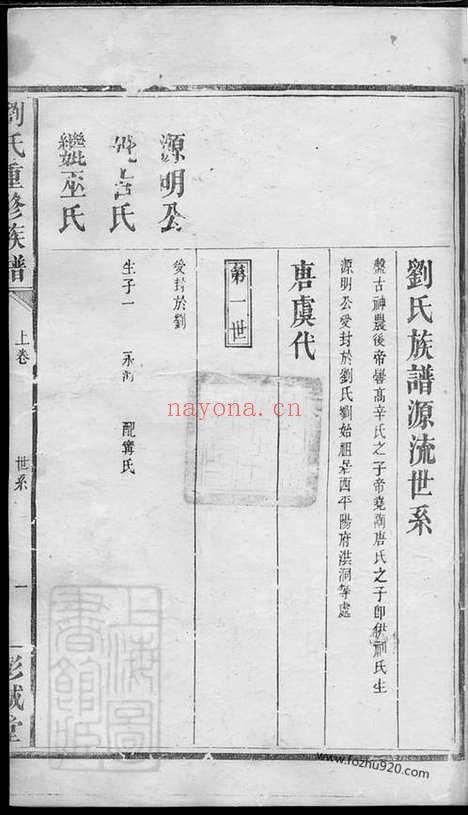 劉氏族譜源流世系
盤古神農後帝嚳高辛氏之子帝堯陶唐氏之子即伊祁氏生
源明公受封於劉氏劉始祖居西平陽府洪洞等處
唐虞代
第一世
源明公
受封於劉
妣宫氏
生子一 永 配甯氏
繼妣巫氏
劉氏重修族譜
上卷
世系
一
彭城堂
上海圖書館藏
nayona.cn
www.fozhu920.com